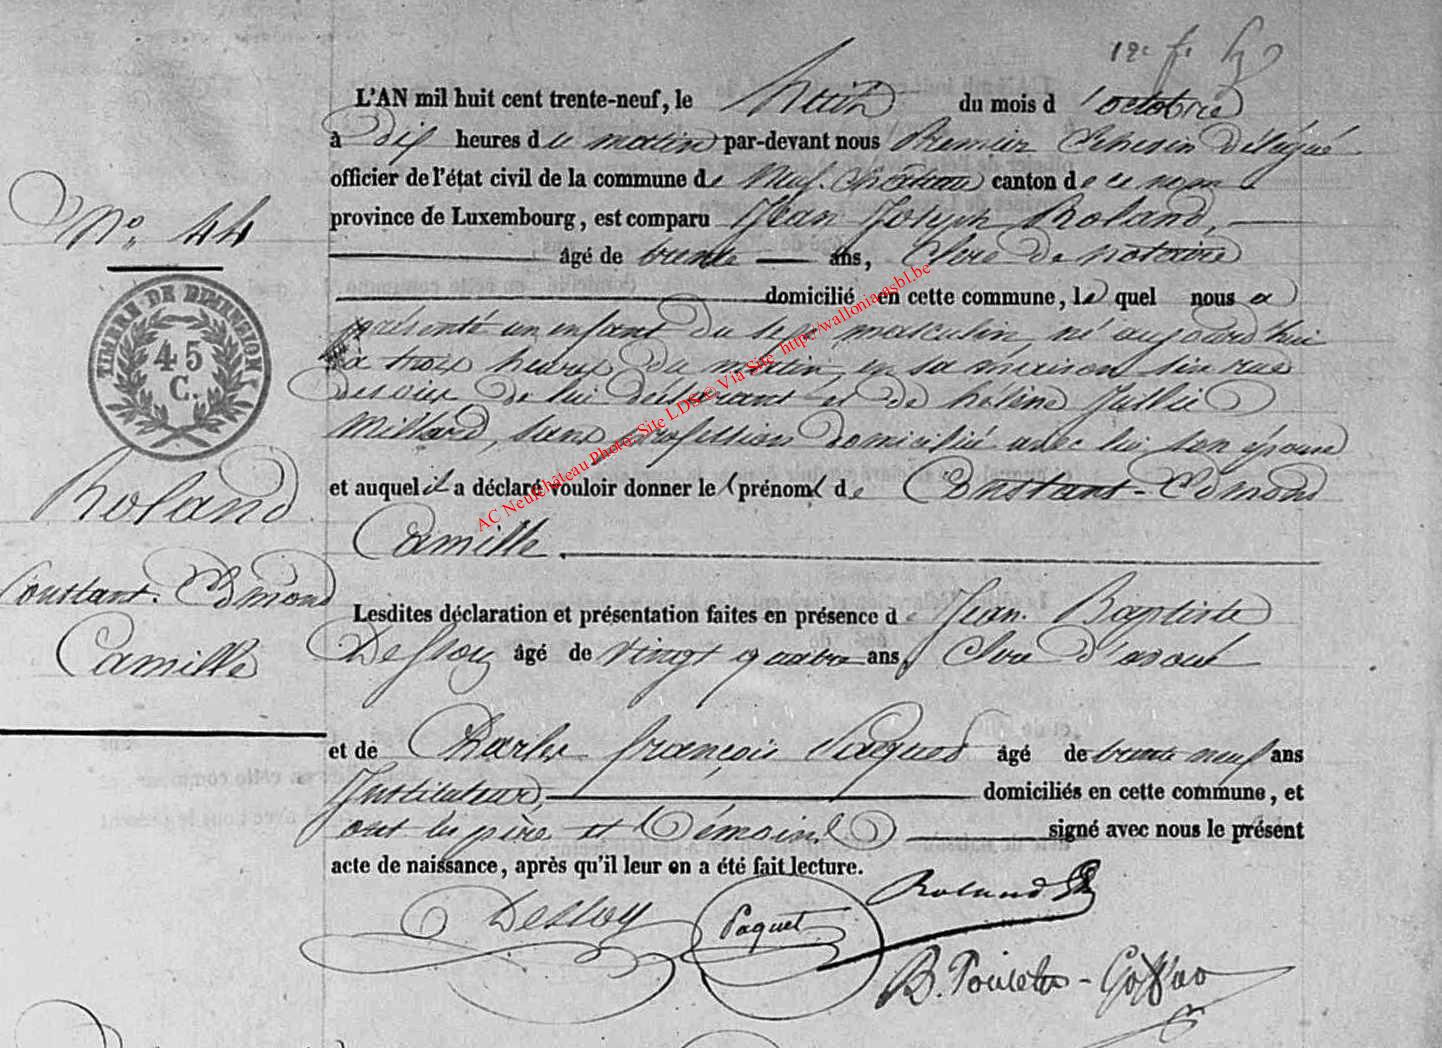 L'AN mil huit cent trente-neuf, le huit du mois d'octobre
à Dix heures du matin par-devant nous Premier Echevin délégué
officier de l'état civil de la commune de Neufchateau canton de ce nom
N° 44
province de Luxembourg, est comparu Jean Joseph Roland,
âgé de trente ans, Clerc de notaire
domicilié en cette commune, le quel nous a
TIMBRE DE DIMENSION
45
C.
présenté un enfant du sexe masculin, né aujourd'hui
à trois heures du matin, en sa maison, sise rue
de lui déclarant et de hélène Jullie
Millard, sans profession domicilié avec lui son épouse
et auquel il a déclaré vouloir donner les prénoms de Constant-Edmond
Camille.
Roland
Constant. Edmond
Camille
Lesdites déclaration et présentation faites en présence de Jean. Baptiste
Dessoy âgé de vingt quatre ans, Clerc d'avoué
et de Charles françois Paquet âgé de trente neuf ans
Instituteur, domiciliés en cette commune, et
ont les père et témoins signé avec nous le présent
acte de naissance, après qu'il leur en a été fait lecture.
Dessoy Paquet Roland
B.
AC Neufchâteau Photo: Site LDS © Via Site http://wallonia.asbl.be